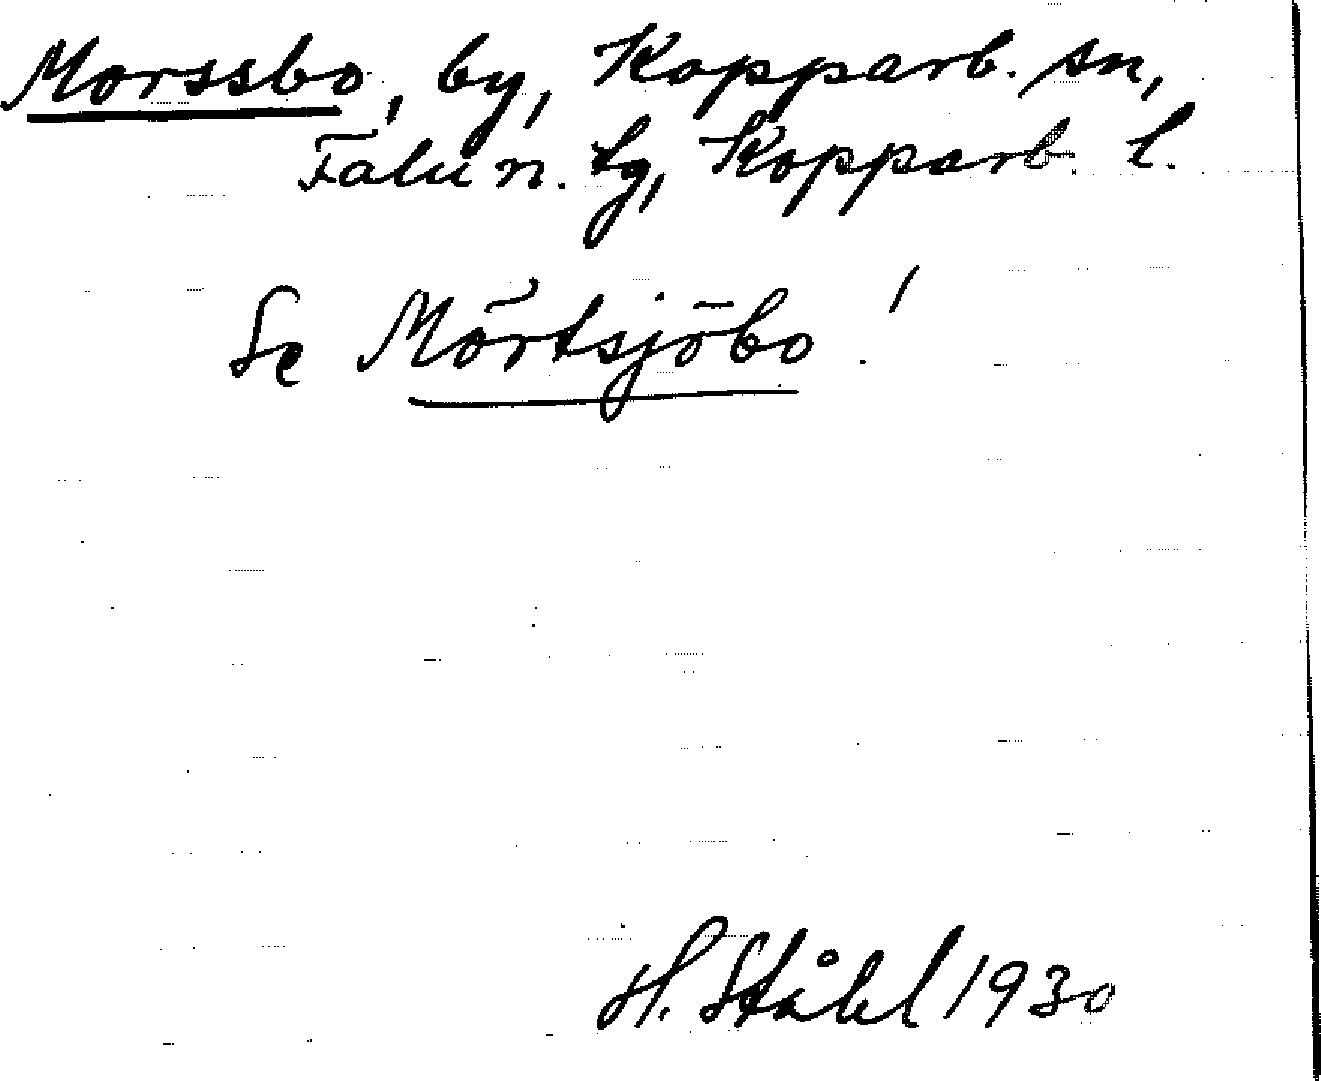 Morssbo, by, Kopparb. sn,
Falu n. tg, Kopparb. l.
Se Mörtsjöbo!
H. Ståhl 1930